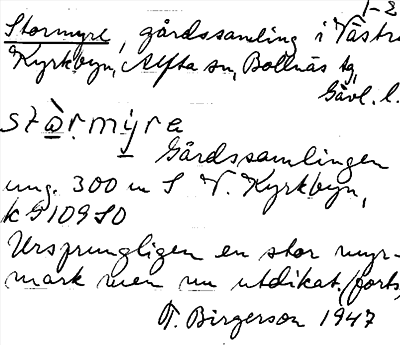 1-2
Stormyre, gårdssamling i Västra
Kyrkbyn, Alfta sn, Bollnäs tg,
Gävl. l.
stàrmyra
Gårdssamlingen
ung. 300 m S V. Kyrkbyn,
k G 109 SO
Ursprungligen en stor myr-
mark men nu utdikat. (forts,
T. Birgerson 1947